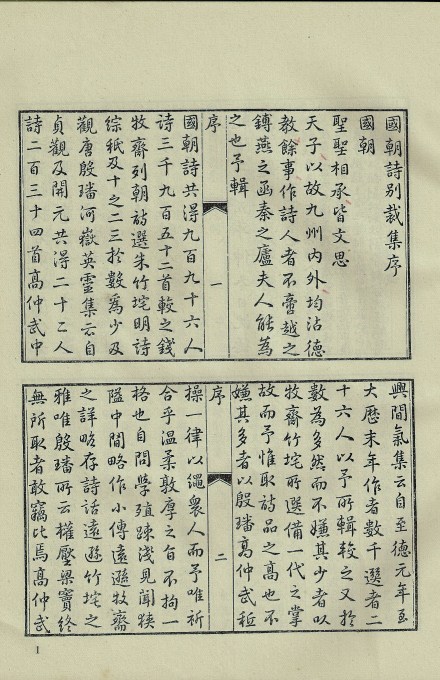 國朝詩別裁集序
國朝
聖聖相承皆文思
天子以故九州內外均沾德
教餘事作詩人者不啻越之
鎛燕之函秦之廬夫人能為
之也予輯
序
一
國朝詩共得九百九十六人
詩三千九百五十二首較之錢
牧齋列朝詩選朱竹垞明詩
綜秖及十之二三於數為少及
觀唐殷璠河嶽英靈集云自
貞觀及開元共得二十二人
詩二百三十四首高仲武中
興間氣集云自至德元年至
大歷末年作者數千選者二
十六人以予所輯較之又於
數為多然而不嫌其少者以
牧齋竹垞所選備一代之掌
故而予惟取詩品之高也不
嫌其多者以殷璠高仲武矩
序
二
操一律以繩衆人而予唯祈
合乎溫柔敦厚之旨不拘一
格也自問學殖踈淺見聞狹
隘中間略作小傳遠遜牧齋
之詳略存詩話遠遜竹垞之
雅唯殷璠所云權壓梁竇終
無所取者敢竊比焉高仲武
1